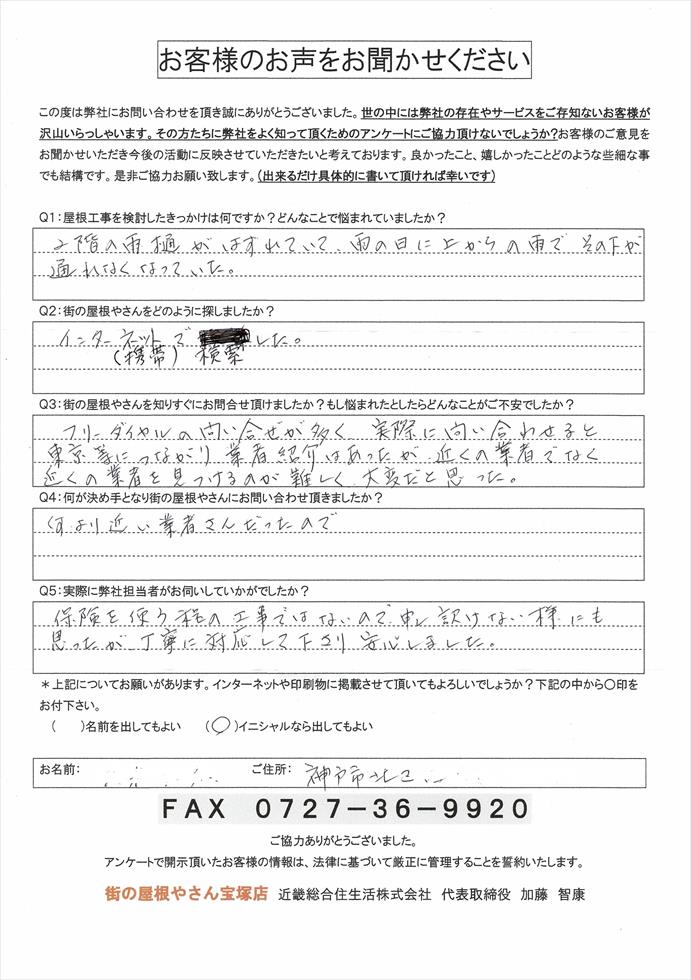 お客様のお声をお聞かせください
この度は弊社にお問い合わせを頂き誠にありがとうございました。世の中には弊社の存在やサービスをご存知ないお客様が
沢山いらっしゃいます。その方たちに弊社をよく知って頂くためのアンケートにご協力頂けないでしょうか?お客様のご意見を
お聞かせいただき今後の活動に反映させていただきたいと考えております。良かったこと、嬉しかったことどのような些細な事
でも結構です。是非ご協力お願い致します。（出来るだけ具体的に書いて頂ければ幸いです）
Q1:屋根工事を検討したきっかけは何ですか?どんなことで悩まれていましたか?
2階の雨樋がはずれていて、雨の日に上からの雨でその下が
通れなくなっていた。
Q2:街の屋根やさんをどのように探しましたか?
インターネットで した。
(携帯) 検索
Q3:街の屋根やさんを知りすぐにお問合せ頂けましたか?もし悩まれたとしたらどんなことがご不安でしたか?
フリーダイヤルの問い合せが多く、実際に問い合わせると
東京等につながり業者紹介はあったが、近くの業者でなく
近くの業者を見つけるのが難しく、大変だと思った。
Q4:何が決め手となり街の屋根やさんにお問い合わせ頂きましたか?
何より近い業者さんだったので
Q5:実際に弊社担当者がお伺いしていかがでしたか?
保険を使う程の工事ではないので、申し訳けない様にも
思ったが、丁寧に対応して下さり安心しました。
＊上記についてお願いがあります。インターネットや印刷物に掲載させて頂いてもよろしいでしょうか?下記の中から〇印を
お付下さい。
(　)名前を出してもよい　(〇)イニシャルなら出してもよい
お名前:　ご住所:　神戸市北区
FAX 0727－36－9920
ご協力ありがとうございました。
アンケートで開示頂いたお客様の情報は、法律に基づいて厳正に管理することを誓約いたします。
街の屋根やさん宝塚店　近畿総合住生活株式会社　代表取締役　加藤　智康